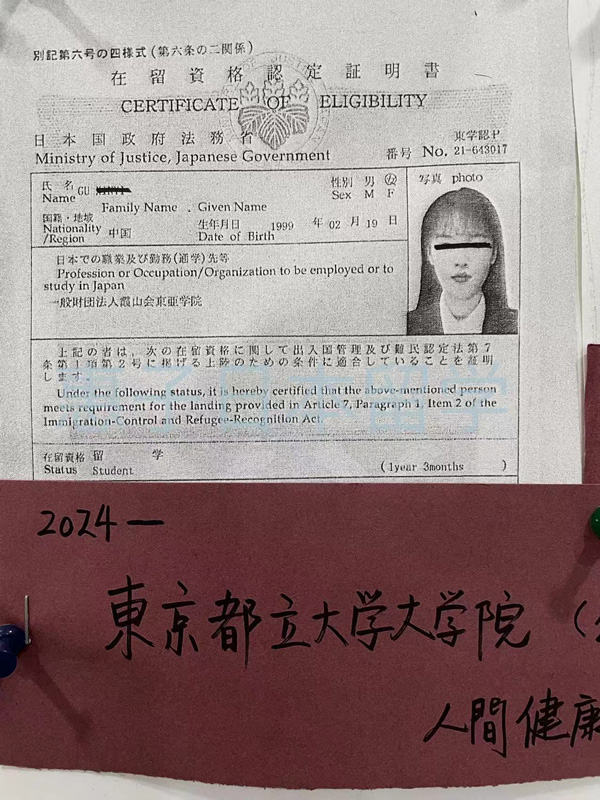 別記第六号の四様式(第六条の二関係)
在留資格認定証明書
CERTIFICATE OF ELIGIBILITY
日本国政府法務省
Ministry of Justice, Japanese Government
東学認P
番号 No. 21-643017
氏名 GU
Name
Family Name . Given Name
性別 男 女
Sex M F
写真 photo
国籍・地域
Nationality 中国
/Region
生年月日 1999 年 02 月 19 日
Date of Birth
日本での職業及び勤務(通学)先等
Profession or Occupation/Organization to be employed or to
study in Japan
一般財団法人霞山会東亜学院
上記の者は、次の在留資格に関して出入国管理及び難民認定法第7
条第1項第2号に掲げる上陸のための条件に適合していることを証明
します。
Under the following status, it is hereby certified that the above-mentioned person
meets requirement for the landing provided in Article 7, Paragraph 1, Item 2 of the
Immigration-Control and Refugee-Recognition Act.
在留資格 留学
Status Student
(1year 3months )
2024—
東京都立大学大学院(
人間健康